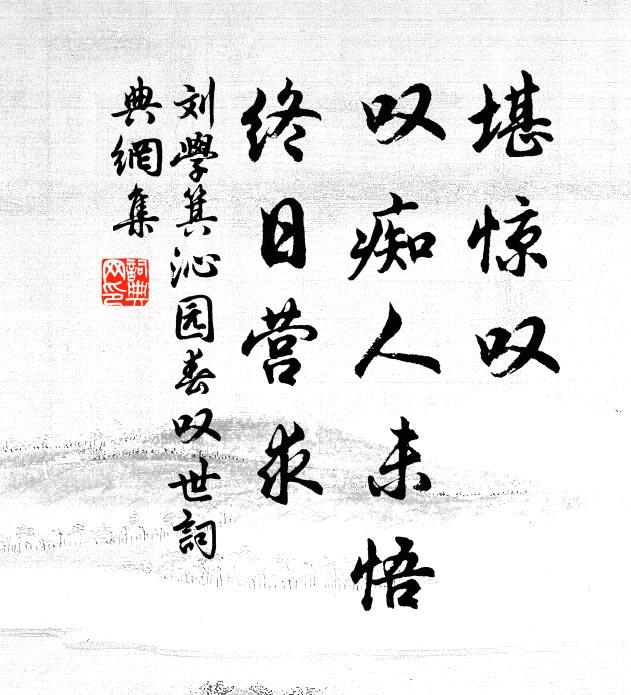 堪惊叹
叹痴人未悟
终日营求
刘學箕沁园春叹世詞
典網集
詞典网印